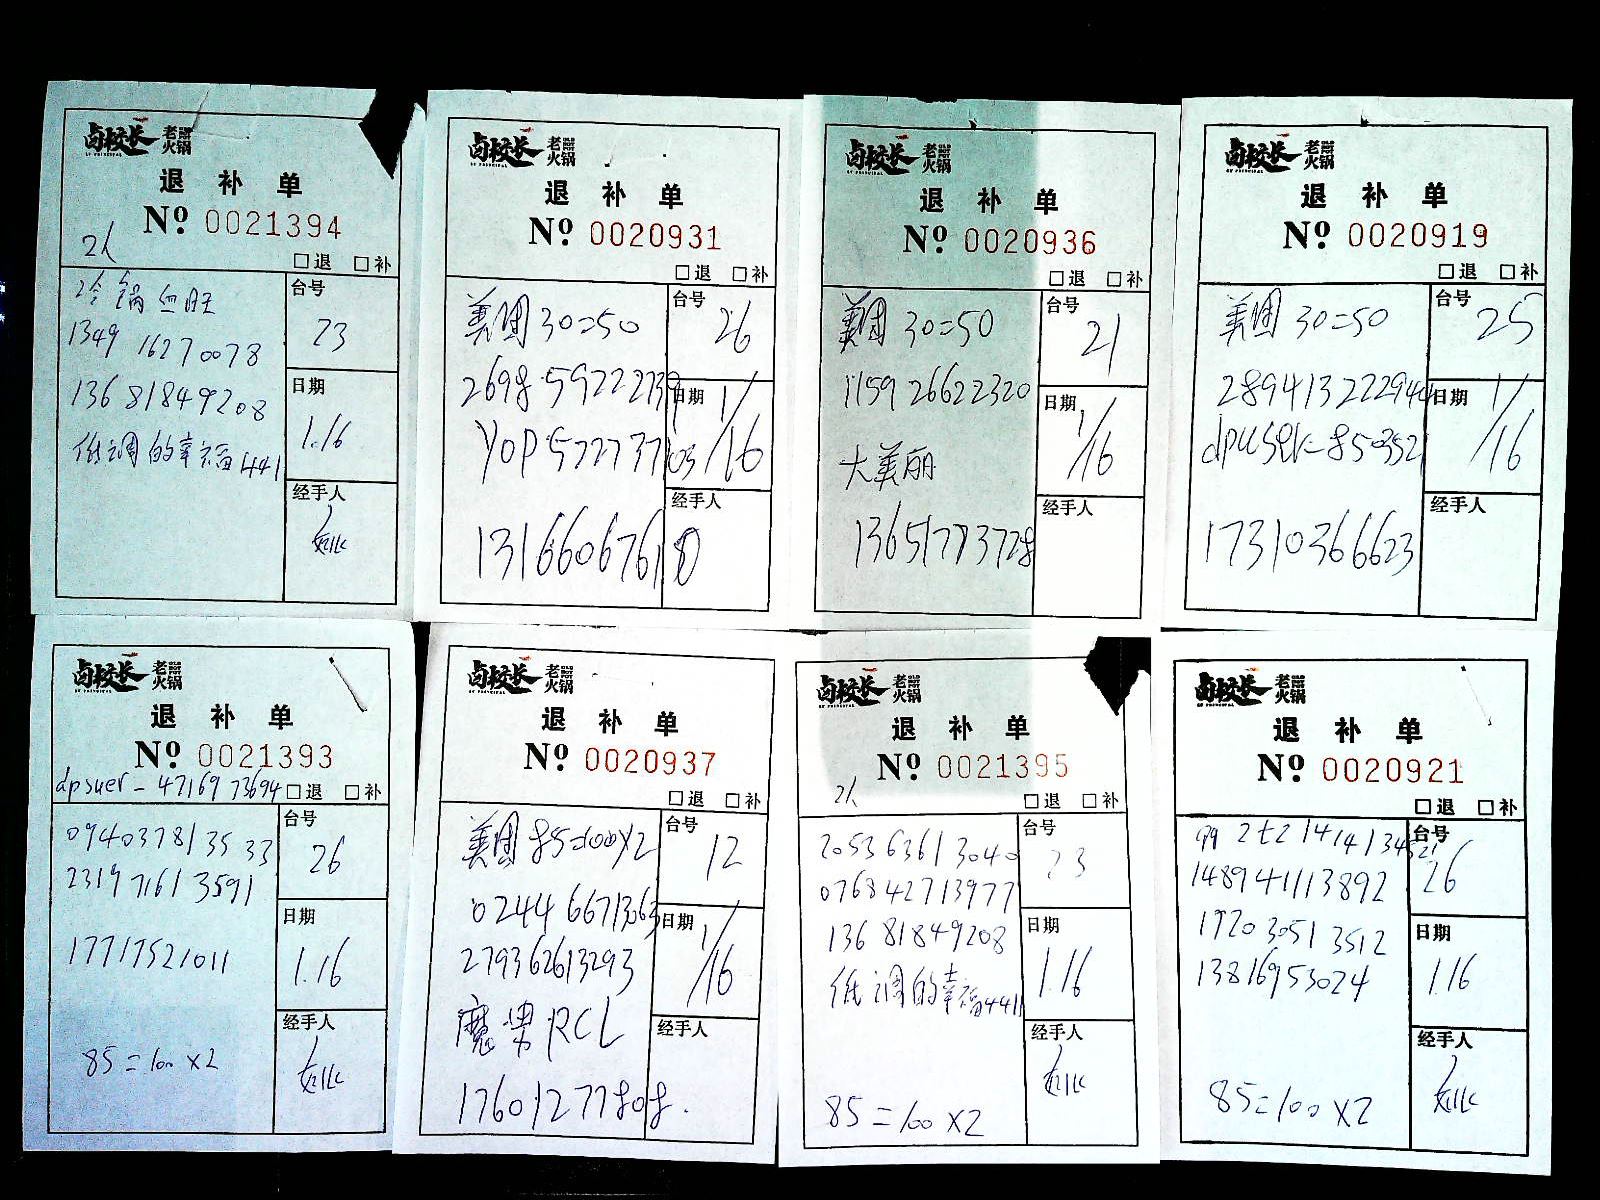 卤校长 老火锅
退 补 单
Nº 0021394
2人
□退 □补
冷锅血旺
1349 16270078
136 81849208
低调的幸福441
台号
23
日期
1.16
经手人
卤校长 老火锅
退 补 单
Nº 0020931
□退 □补
美团 30=50
2698 59222739
yop 57273703
13166067610
台号
26
日期
1/16
经手人
卤校长 老火锅
退 补 单
Nº 0020936
□退 □补
美团 30=50
1159 26622320
大美丽
13651773728
台号
21
日期
1/16
经手人
卤校长 老火锅
退 补 单
Nº 0020919
□退 □补
美团 30=50
289413222944
dpuser-850352
17310366623
台号
25
日期
1/16
经手人
卤校长 老火锅
退 补 单
Nº 0021393
dpsuer-47169 73694
□退 □补
0940378135 33
2319 7161 3591
17717521011
85=100 X2
台号
26
日期
1.16
经手人
卤校长 老火锅
退 补 单
Nº 0020937
□退 □补
美团 85=100X2
0244 66713063
279362613293
魔男 RCL
17601277808.
台号
12
日期
1/16
经手人
卤校长 老火锅
退 补 单
Nº 0021395
2人
□退 □补
2053 6361 3040
076842713977
136 81849208
低调的幸福4411
85=100 X2
台号
23
日期
1.16
经手人
卤校长 老火锅
退 补 单
Nº 0020921
□退 □补
148941113892
1920 3051 3512
13816953024
85=100 X2
台号
26
日期
1.16
经手人